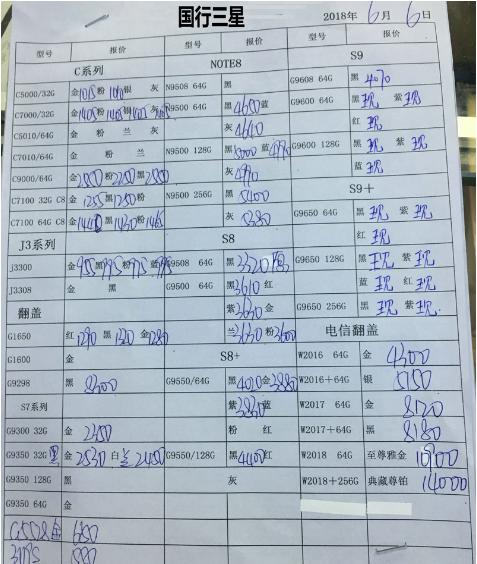 国行三星
2018年6月6日
型号 报价 型号 报价 型号 报价
C系列 NOTE8 S9
C5000/32G 金1015粉1010银 灰 N9508 64G 黑 G9608 64G 黑4070
C7000/32G N9500 64G 黑4650蓝 G9600 64G 黑现 紫现
C5010/64G 金 粉 兰 灰4640 红现
C7010/64G 金 粉 兰 N9500 128G 黑5000蓝4990 G9600 128G 黑现 紫现
C9000/64G 灰4990 蓝现
C7100 32G C8 金1255黑1250粉 N9500 256G 黑5400 S9+
C7100 64G C8 灰5380 G9650 64G 黑现 紫现
J3系列 S8 红现
J3300 G9508 64G 黑3320 G9650 128G 黑现 紫现
J3308 金 黑 G9500 64G 黑3610红 蓝现 红现
翻盖 紫3630金 G9650 256G 黑现 紫现
G1650 红1290黑1320金1280 兰3630粉3600 电信翻盖
G1600 金 S8+ W2016 64G 金4300
G9298 黑8300 G9550/64G 黑4020金3880 W2016+64G 银5150
S7系列 紫3830蓝 W2017 64G 金8120
G9300 32G 金2350 粉 红 W2017+64G 黑8180
G9350 32G黑 金2530白兰2450 G9550/128G 黑4400红 W2018 64G 至尊雅金10900
G9350 128G 黑 灰 W2018+256G 典藏尊铂14000
G9350 64G 金
G5508金 650